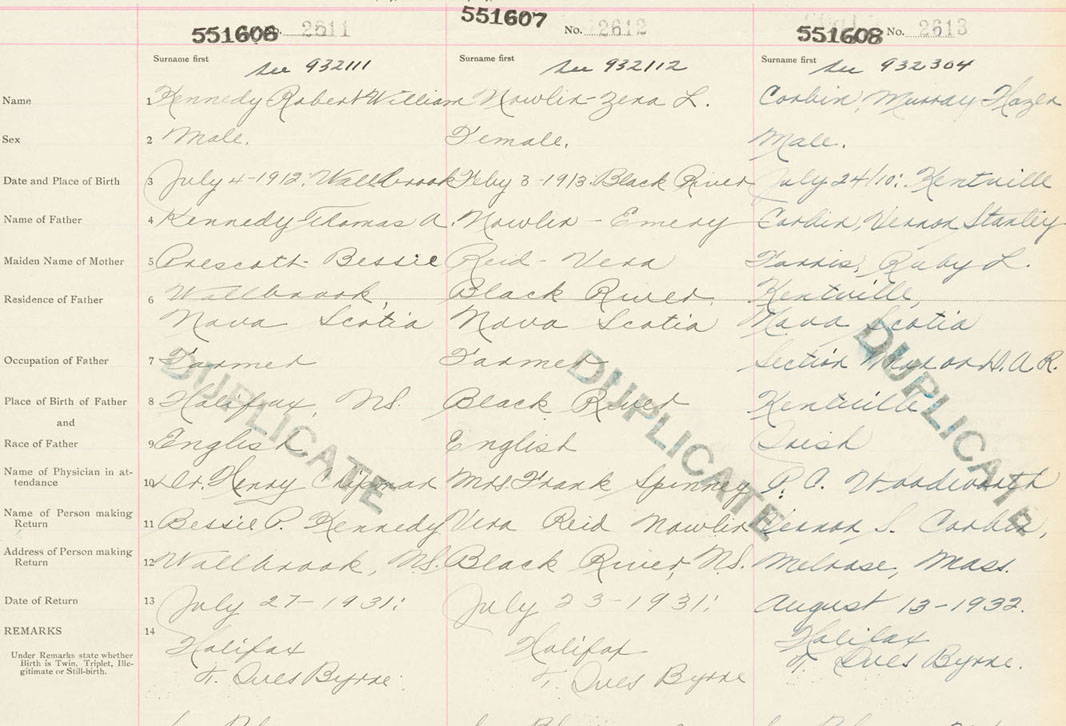 551608 No. 2611 551607 No. 2612 551608 No. 2613
Surname first Surname first Surname first
See 932111 See 932112 See 932304
Name 1 Kennedy Robert William Nowlin-Zena L. Corbin, Murray Hazen
Sex 2 Male. Female. Male.
Date and Place of Birth 3 July 4-1912. Wallbrook Feby 3-1913. Black River July 24/10: Kentville
Name of Father 4 Kennedy Thomas A. Nowlin - Emery Corbin, Vernon Stanley
Maiden Name of Mother 5 Prescott- Bessie Reid- Vera Ruby L.
Residence of Father 6 Wallbrook, Black River, Kentville,
Nova Scotia Nova Scotia Nova Scotia
Occupation of Father 7 Farmer Farmer Section Man on D.A.R.
Place of Birth of Father 8 Halifax, N.S. Black River Kentville
and
Race of Father 9 English English Irish
Name of Physician in at-
tendance 10 Dr. Henry Chipman Mrs. Frank Spinney P. C. Woodworth
Name of Person making
Return 11 Bessie P. Kennedy Vera Reid Nowlin Vernon S. Corbin,
Address of Person making
Return 12 Wallbrook, N.S. Black River, N.S. Melrose, Mass.
Date of Return 13 July 27-1931: July 23-1931: August 13-1932.
REMARKS 14 Halifax Halifax Halifax
Under Remarks state whether
Birth is Twin, Triplet, Ille-
gitimate or Still-birth.
Byrne. Byrne Byrne.
DUPLICATE DUPLICATE DUPLICATE